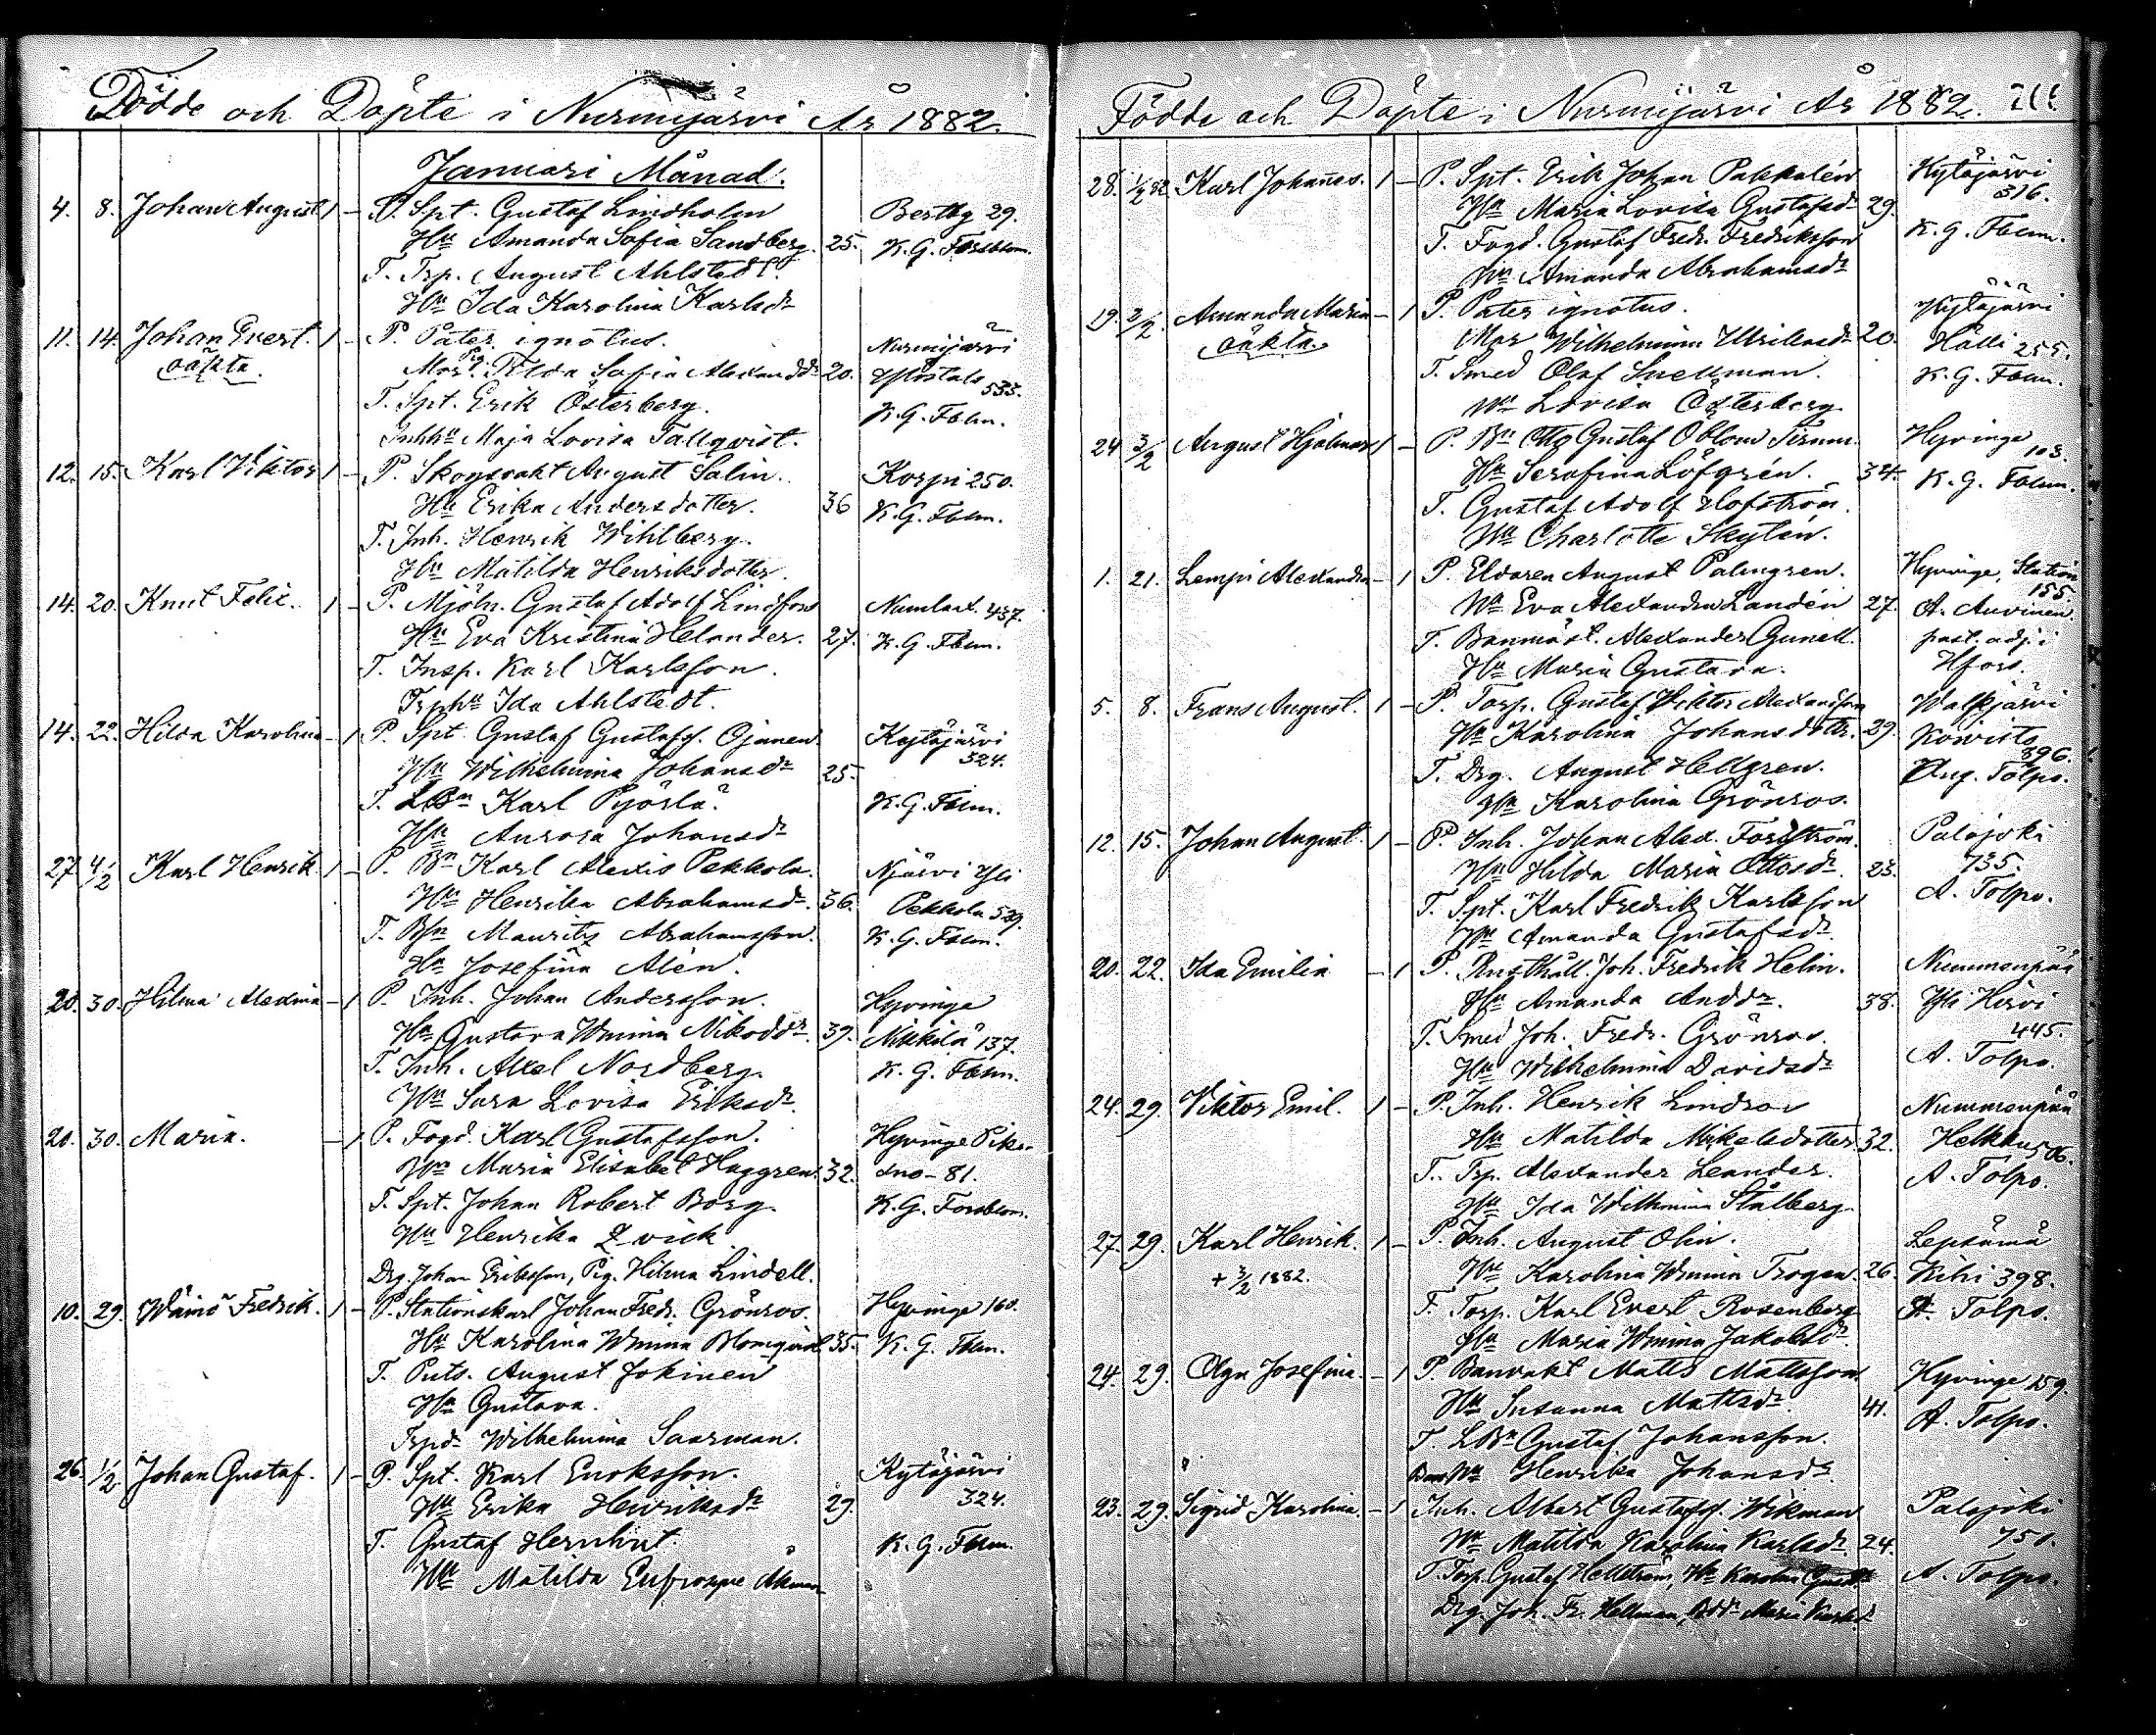 Födde och Döpte i Nurmijärvi År 1882.
Januari Månad.
4. 8. Johan August 1 – P. Spt. Gustaf Lindholm Bertby 29.
Hu Amanda Sofia Sandberg. 25. K. G. Forsblom.
T. Trp. August Ahlstedt.
Hu Ida Karolina Karlsdr
11. 14. Johan Evert. 1 – P. Pater ignotus. Nurmijärvi
oäkta. Mor Pig. Tilda Sofia Alexandd: 20. 533.
T. Spt. Erik Österberg. K. G. Fblm.
Inhhu Maja Lovisa Tallqvist.
12. 15. Karl Viktor 1 – P. Skogsvakt August Salin. Korpi 250.
Hu Erika Andersdotter. 36 K. G. Fblm.
T. Inh. Henrik Wihlberg.
Hu Matilda Henriksdotter.
14. 20. Knut Felix. 1 – P. Mjöln. Gustaf Adolf Lindfors Numlax. 437.
Hu Eva Kristina Helander. 27. K. G. Fblm.
T. Insp. Karl Karlsson.
Trphu Ida Ahlstedt.
14. 22. Hilda Karolina – 1 P. Spt. Gustaf Gustafs. Ojanen Kytäjärvi
Hu Wilhelmina Johansdr 25. 324.
T. LBn Karl Pyörlä. K. G. Fblm.
Hu Aurora Johansdr
27. 4/2 Karl Henrik 1 – P. Bn Karl Alexis Pekkola. Njärvi Yli
Hu Henrika Abrahamsdr. 36. Pekkola 529.
T. Bsn Mauritz Abrahamsson. K. G. Fblm.
Hu Josefina Alén.
20. 30. Hilma Alexina – 1 P. Inh. Johan Andersson. Hyvinge
Hu Gustava Wmina Nikodr. 39. Mikkilä 137.
T. Inh. Axel Nordberg. K. G. Fblm.
Hu Sara Lovisa Eriksdr.
20. 30. Maria. – 1 P. Fogd. Karl Gustafsson. Hyvinge
Hu Maria Elisabet Haggren. 32. 81.
T. Spt. Johan Robert Borg. K. G. Forsblom.
Hu Henrika Zwick
Drg. Johan Eriksson, Pig. Hilma Lindell.
10. 29. Wäinö Fredrik. 1 – P. Stationskarl Johan Fredr. Grönros. Hyvinge 160.
Hu Karolina Wmina Blomqvist 35. K. G. Fblm.
T. Puts. August Jokinen
Hu Gustava.
Trpdr Wilhelmina Saarman.
26. 1/2 Johan Gustaf. 1 – P. Spt. Karl Enoksson. Kytäjärvi
Hu Erika Henriksdr 29. 324.
T. Gustaf Hernhut. K. G. Fblm.
Hu Matilda Eufrosyne Åkman
Födde och Döpte i Nurmijärvi År 1882.
28. 1/2 82 Karl Johannes. 1 – P. Spt. Erik Johan Pakkalén Kytäjärvi
Hu Maria Lovisa Gustafsdr 29. 316.
T. Fogd. Gustaf Fredr. Fredriksson K. G. Fblm.
Hu Amanda Abrahamsdr
19. 2/2 Amanda Maria – 1 P. Pater ignotus. Kytäjärvi
oäkta. Mor Wilhelmina Ulriksdr 20. Hälli 255.
T. Smed Olof Snellman. K. G. Fblm.
Hu Lovisa Österberg
24. 3/2 August Hjalmar 1 – P. Bn Otto Gustaf Öblom Hyvinge
Hu Serafina Löfgrén. 34. 103.
T. Gustaf Adolf Hofström. K. G. Fblm.
Hu Charlotte Skytén.
1. 21. Lempi Alexandra – 1 P. Eldaren August Palmgren. Hyvinge, Station
Hu Eva Alexandra Landén 27. 155
T. Banmäst. Alexander Gunell. A. Auvinen
Hu Maria Gustava. past. adj. i
Hfors.
5. 8. Frans August. 1 – P. Torp. Gustaf Viktor Alexandsson Walkjärvi
Hu Karolina Johansdottr. 29. Koivisto
T. Drg. August Hellgren. 896.
Hu Karolina Grönros. Aug. Tolpo.
12. 15. Johan August. 1 – P. Inh. Johan Alex. Forsström. Palojoki
Hu Hilda Maria Ottosdr. 23. 735.
T. Spt. Karl Fredrik Karlsson A. Tolpo.
Hu Amanda Gustafsdr.
20. 22. Ida Emilia – 1 P. Rusthåll. Joh. Fredrik Helin. Nummenpää
Hu Amanda Anddr. 38. Yli Hirvi
T. Smed Joh. Fredr. Grönros. 445.
Hu Wilhelmina Davidsdr A. Tolpo.
24. 29. Viktor Emil. 1 – P. Inh. Henrik Lindros Nummenpää
Hu Matilda Mikelsdotter 32. 506.
T. Trp. Alexander Leander. A. Tolpo.
Hu Ida Wilhmina Stålberg.
27. 29. Karl Henrik. 1 – P. Inh. August Olin. Lepsämä
+ 3/2 1882. Hu Karolina Wmina Trogen. 26. Kihi 398.
T. Torp. Karl Evert Rosenberg A. Tolpo.
Hu Maria Wmina Jakobsdr.
24. 29. Olga Josefina. – 1 P. Banvakt Matts Mattsson Hyvinge 159.
Hu Susanna Mattsdr. 41. A. Tolpo.
T. LBn Gustaf Johansson.
Hu Henrika Johansdr.
23. 29. Sigrid Karolina. – 1 Inh. Albert Gustafs. Wikman Palojoki
Hu Matilda Karolina Karlsdr. 24. 750.
T. Torp. Gustaf Hellström, Hu Karolina A. Tolpo.
Drg. Joh. Fr. Hellman, Maria